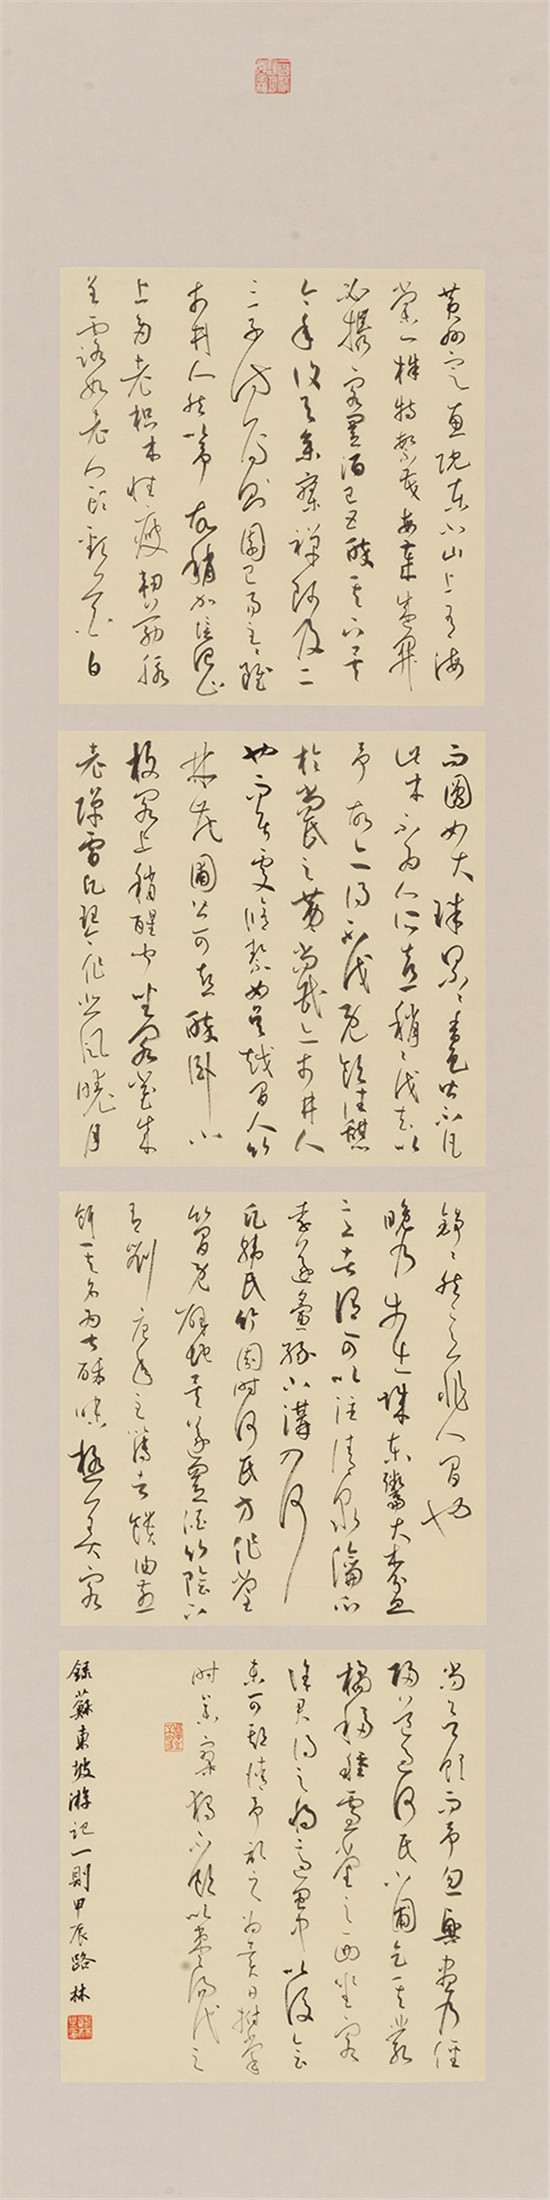 黃州定惠院東小山上有海
棠一株特繁茂每歲盛開
必攜客置酒已五醉其下矣
今年復與參寥禪師及二
三子訪焉則園已易主主雖
市井人然以予故稍加培治山
上多老枳木性瘦韌筋脉
呈露如老人頭頸花白
而圓如大珠累累香色皆不凡
此木不為人所喜稍稍伐去以
予故亦得不伐既飲往憩
於尚氏之第尚氏亦市井人
也而居處修潔如吳越間人竹
林花圃皆可喜醉卧小
板閣上稍醒聞坐客崔成
老彈雷氏琴作悲風曉月
錚錚然意非人間也
晚乃步出城東鬻大木盆
意者謂可以注清泉瀹瓜
李遂夤緣小溝入何
氏韓氏竹園時何氏方作堂
竹間既闢地矣遂置酒竹陰下
有劉唐年主簿者饋油煎
餌其名為甚酥味極美客
尚欲飲而予忽興盡乃徑
歸道過何氏小圃乞其叢
橘移種雪堂之西坐客
徐君得之將適閩中以後會
未可期請予記之為異日拊掌
時參寥獨不飲以棗湯代之
錄蘇東坡游記一則甲辰路林